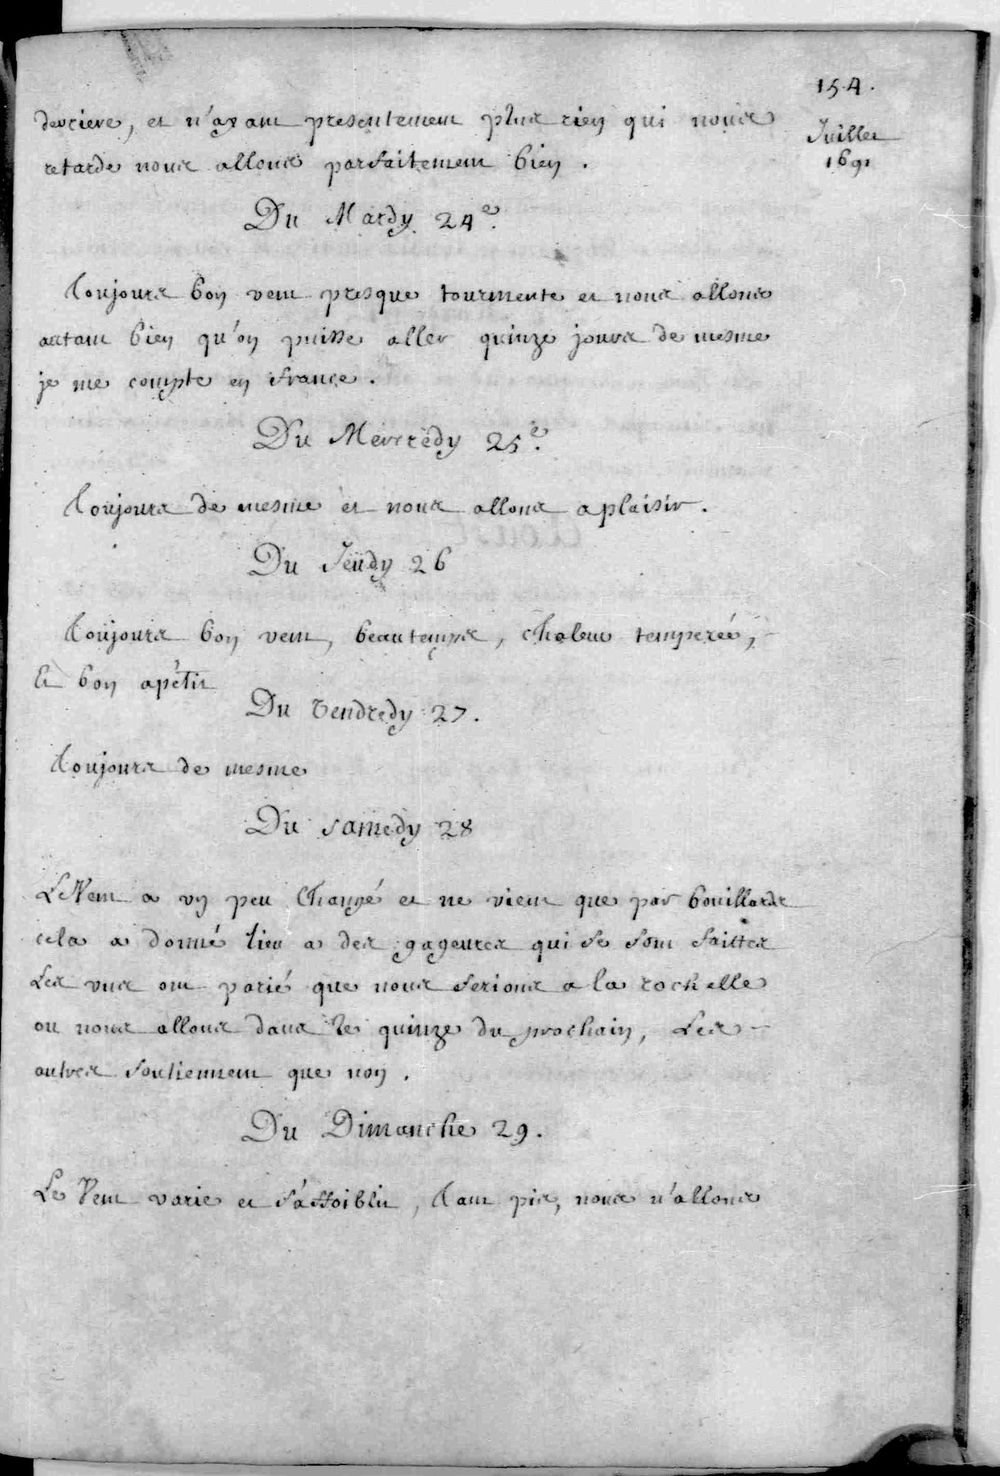 154.
Juillet
1691
derriere, et n'ayant presentement plus rien qui nous
retarde nous allons parfaitement bien.
Du Mardy 24e.
Toujours bon vent presque tourmente et nous allons
autant bien qu'on puisse aller quinze jours de mesme
je me compte en france.
Du Mercredy 25e.
Toujours de mesme et nous allons a plaisir.
Du Jeüdy 26
Toujours bon vent, beau temps, chaleur temperée,
Et bon apétit
Du Vendredy 27.
Toujours de mesme
Du samedy 28
Le Vent a vn peu Changé et ne vient que par bouillards
cela a donné lieu a des gageures qui se sont faittes
Les vns ont parié que nous serions a la rochelle
ou nous allons dans le quinze du prochain, Les
autres soutiennent que non.
Du Dimanche 29.
Le Vent varie et s'affoiblit, Tant pis, nous n'allons